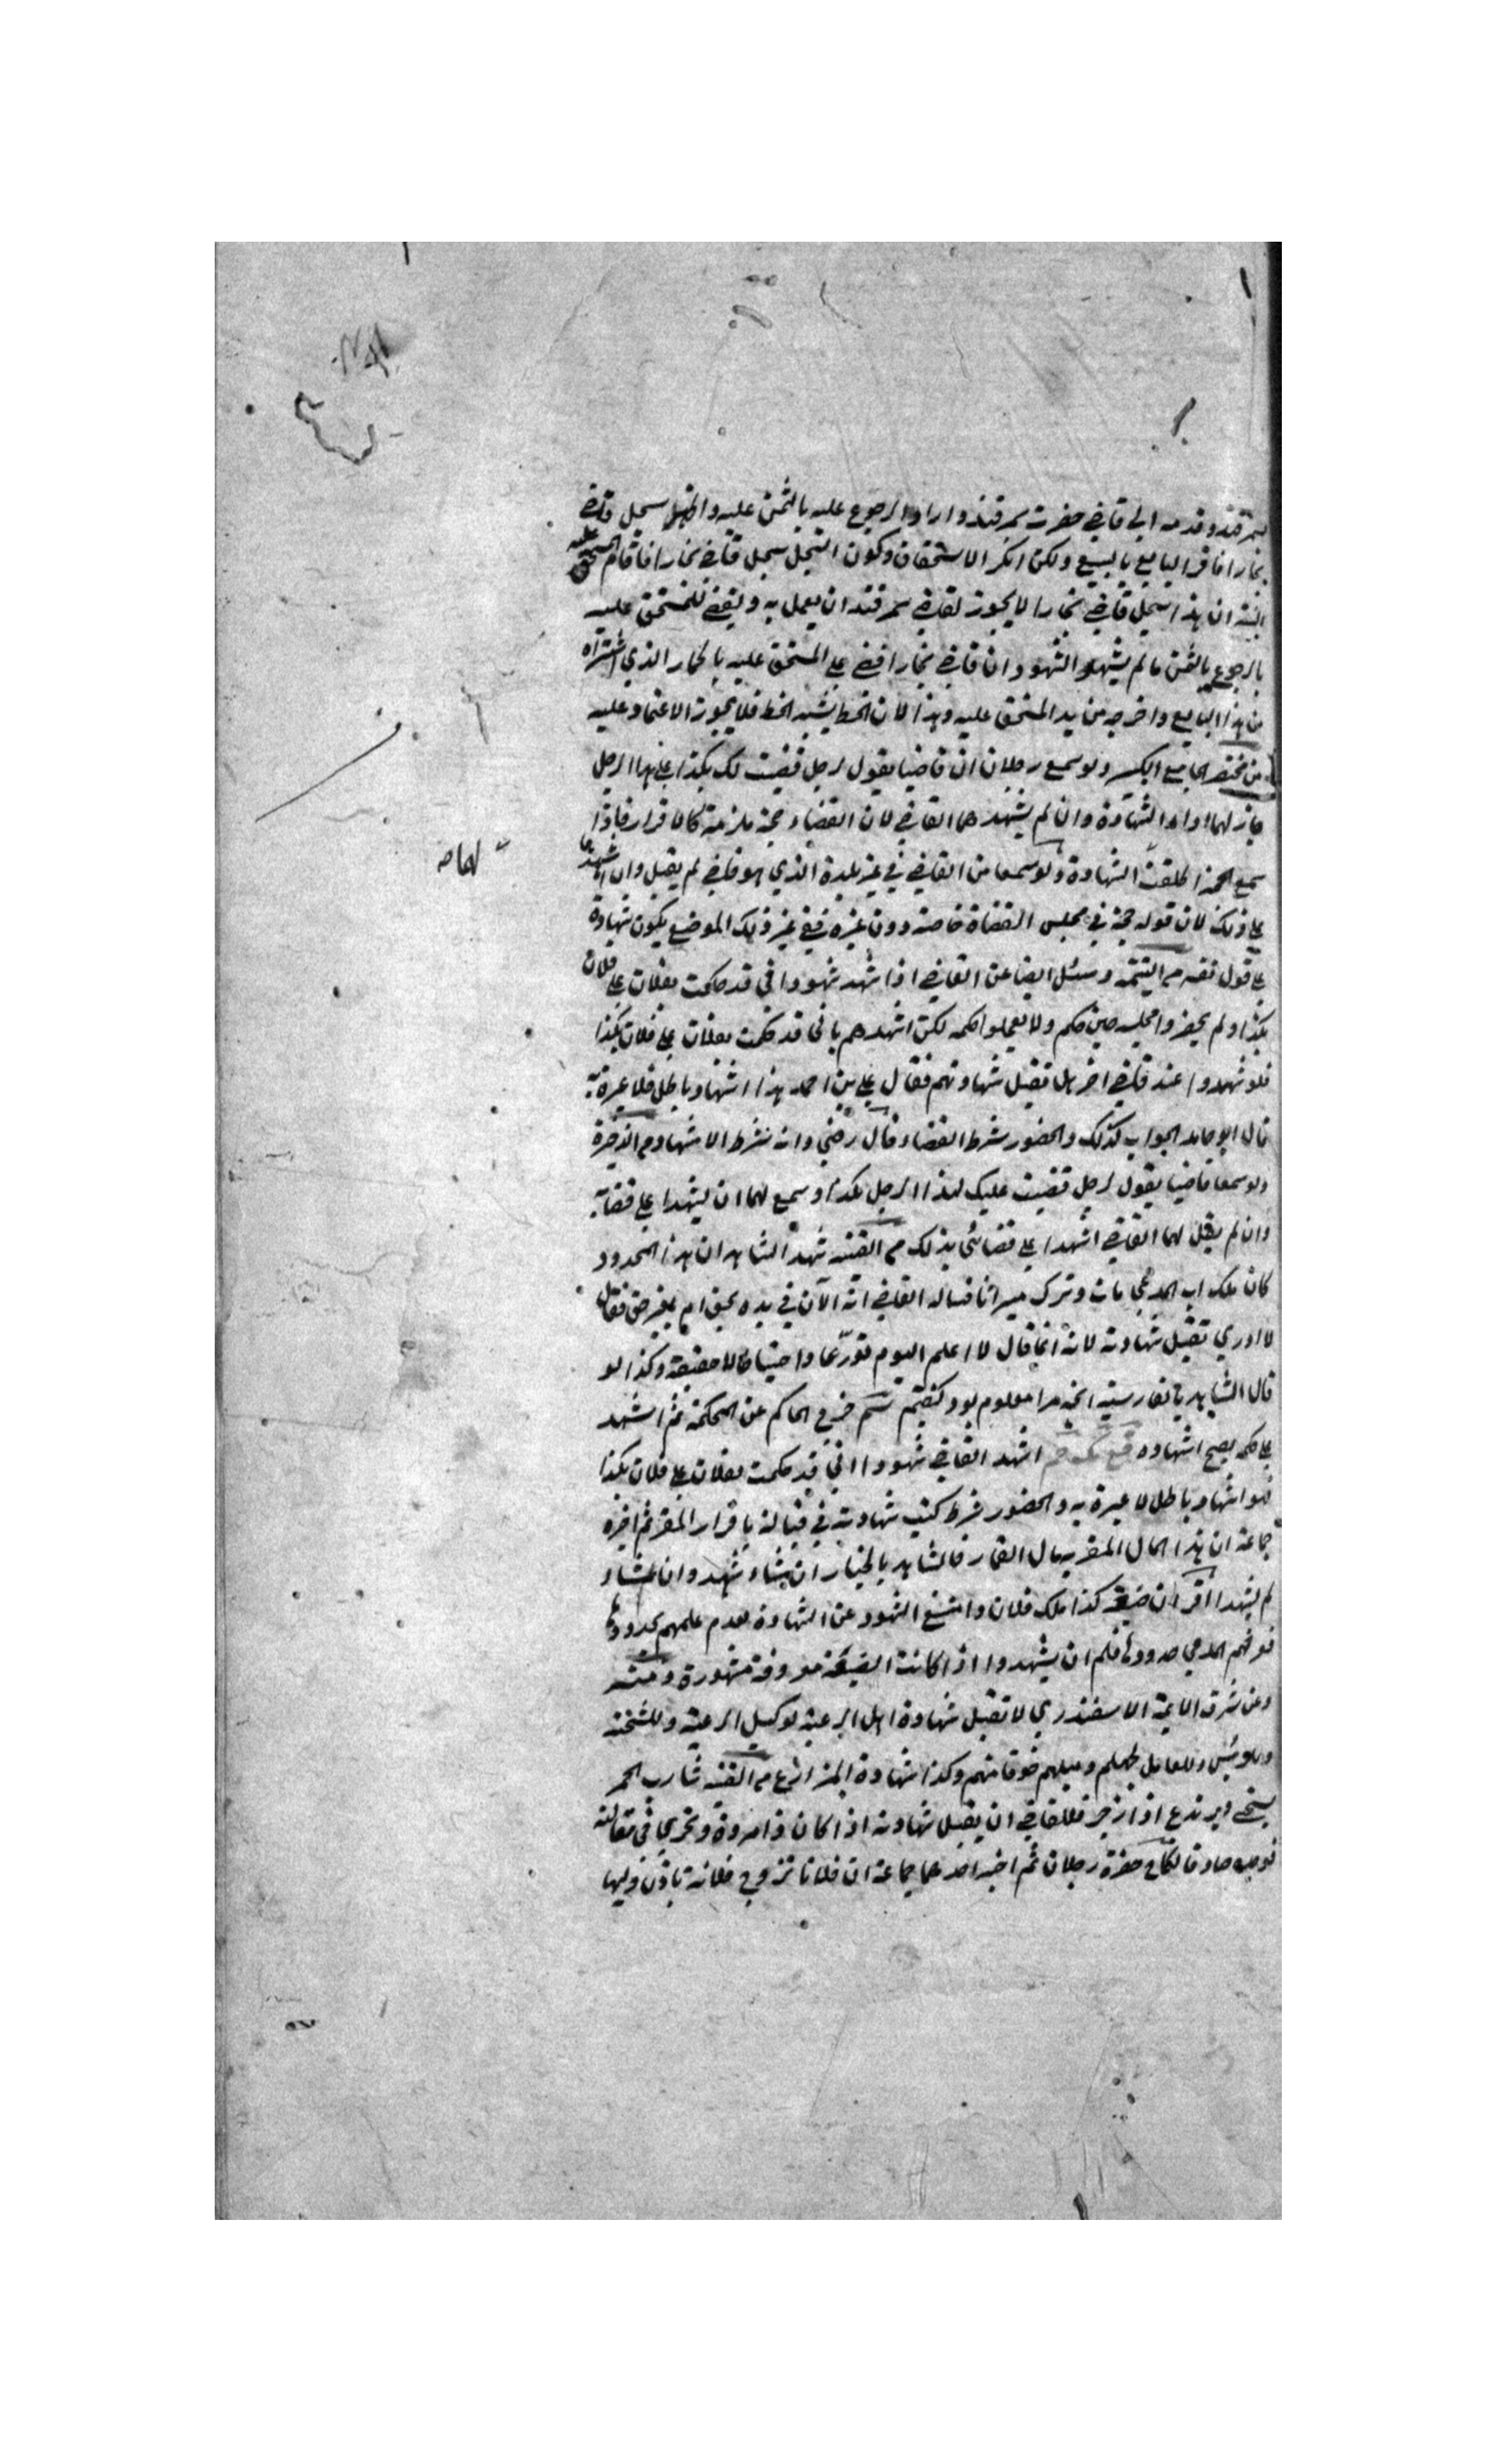 بسمرقند وقدمه الى قاضي حضرت سمرقند واراد الرجوع عليه بالثمن عليه واظهر سجل قاضي
بخارا فاقر البايع بالبيع ولكن انكر الاستحقاق وكون السجل سجل قاضي بخارا فاقام المستحق عليه
البينة ان هذا سجل قاضي بخارا لا يجوز لقاضي سمرقند ان يعمل به ويقضي للمستحق عليه
بالرجوع بالثمن ما لم يشهد الشهود ان قاضي بخارا قضى على المستحق عليه بالحمار الذي اشتراه
من هذا البايع واخرجه من يد المستحق عليه وهذا لان الخط يشبه الخط فلا يجوز الاعتماد عليه
من مختصر الجامع الكبير ولو سمع رجلان ان قاضيا يقول لرجل قضيت لك بكذا على هذا الرجل
جاز لهما اداء الشهادة وان لم يشهدهما القاضي لان القضاء حجة ملزمة كالاقرار فاذا
سمع الحجة اطلقت الشهادة ولو سمعا من القاضي في غير بلدة الذي هو قاضي لم يقبل وان اشهدهما
على ذلك لان قوله حجة في مجلس القضاة خاصة دون غيره ففي غير ذلك الموضع يكون شهادة
على قول نفسه م التتمة وسئل ايضا عن القاضي اذا اشهد شهودا اني قد حكمت بفلان على فلان
بكذا ولم يحضروا مجلسه حين حكم ولا يعملوا حكمه لكن اشهدهم باني قد حكمت بفلان على فلان بكذا
فلو شهدوا عند قاضي اخر هل تقبل شهادتهم فقال علي بن احمد هذا اشهاد باطل فلا عبرة به
قال ابو حامد الجواب كذلك والحضور شرط القضاء قال رضي وانه شرط الاشهاد م الذخيرة
ولو سمعا قاضيا يقول لرجل قضيت عليك لهذا الرجل بكذا وسمع لهما ان يشهدا على قضائه
وان لم يقل لهما القاضي اشهدا على قضائي بذلك م القنية شهد الشاهد ان هذا المحدود
كان ملك اب المدعي مات وترك ميراثا فساله القاضي انه الآن في يده بحق ام بغير حق فقال
لا ادري تقبل شهادته لانه انما قال لا اعلم اليوم تورعا واحتياطا لا حقيقة وكذا لو
قال الشاهد بالفارسية انچه مرا معلوم بود گفتم خرج الحاكم عن المحكمة ثم اشهد
على حكمه يصح اشهاده اشهد القاضي شهودا اني قد حكمت بفلان على فلان بكذا
فهو اشهاد باطل لا عبرة به والحضور شرط كتب شهادته في قبالة باقرار المقر ثم اخبره
جماعة ان هذا المال المقر به مال القمار فالشاهد بالخيار ان شاء شهد وان شاء
لم يشهد اقر ان ضيعة كذا ملك فلان وامتنع الشهود عن الشهادة لعدم علمهم بحدودها
فعرفهم المدعي حدودها فلهم ان يشهدوا اذا كانت الضيعة معروفة مشهورة ومنه
وعن شرف الايمة الاسفندري لا تقبل شهادة اهل الرعية لوكيل الرعية وللشحنة
وللرئيس وللعامل لجهلهم وميلهم خوفا منهم وكذا شهادة المزارع م القنية شارب الخمر
يستحي ويرتدع اذا زجر فللقاضي ان يقبل شهادته اذا كان ذا مروة وتحرى في مقالته
فوجده صادقا نكاح حضره رجلان ثم اخبر احدهما جماعة ان فلانا تزوج فلانة باذن وليها